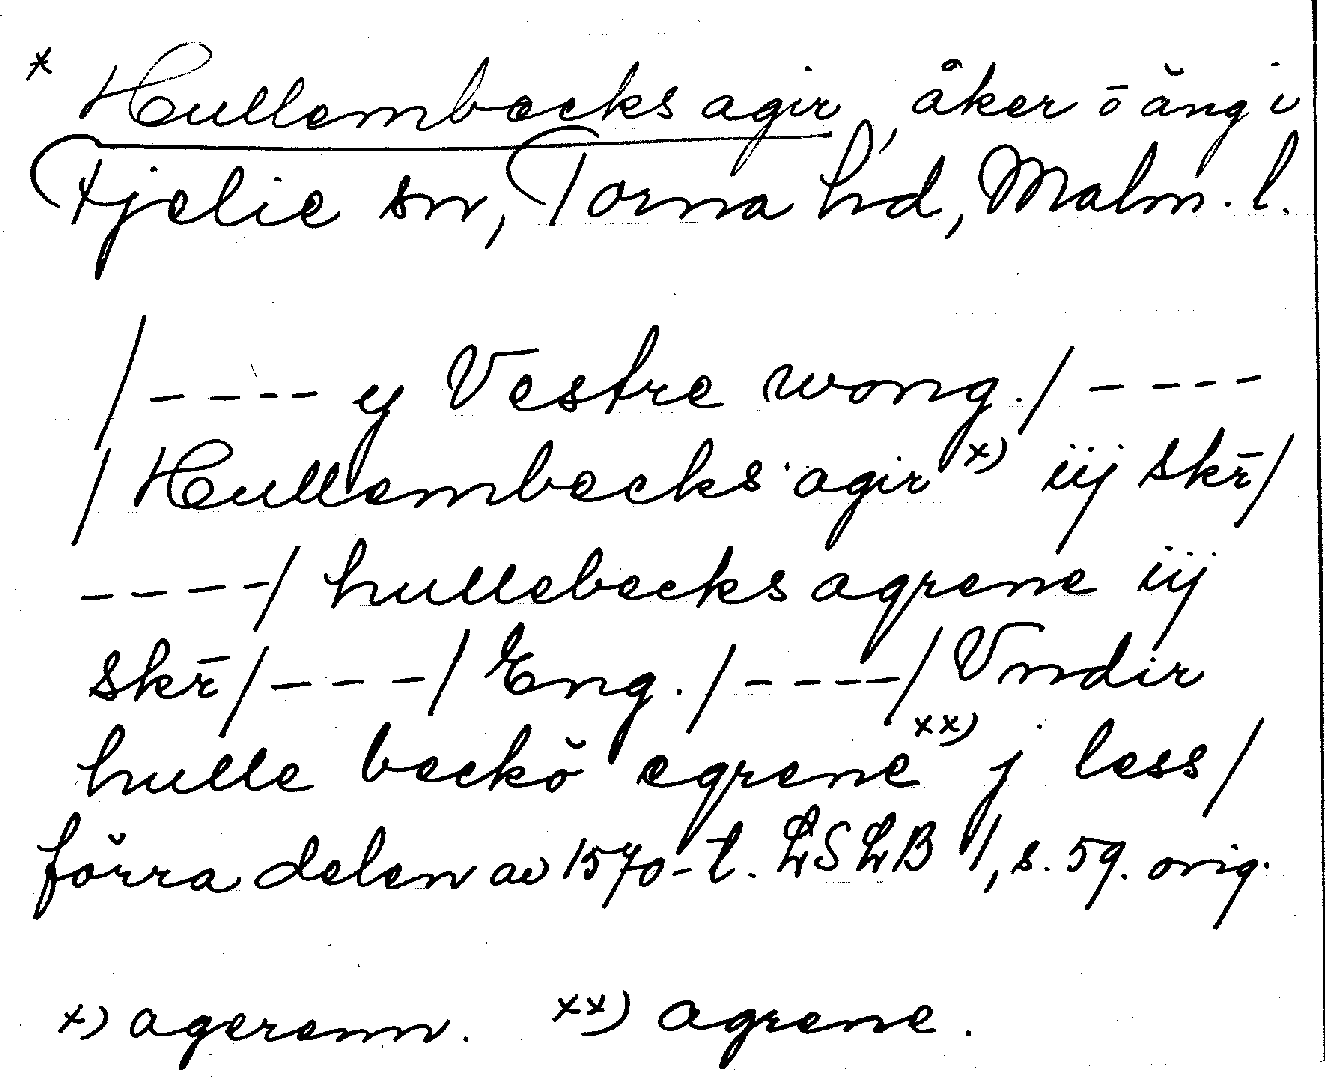 * Hullembecks agir, åker o äng i
Fjelie sn, Torna hd, Malm. l.
/---- y Vestre wong./----
/Hullembecks agir x) iij skr̄/
----/ hullebecks agrene iij
skr̄/---/ Eng./----/ Vndir
hulle beckō egrene xx) j less/
förra delen av 1570-t. LSLB 1, s. 59. orig.
x) agerenn. xx) agrene.